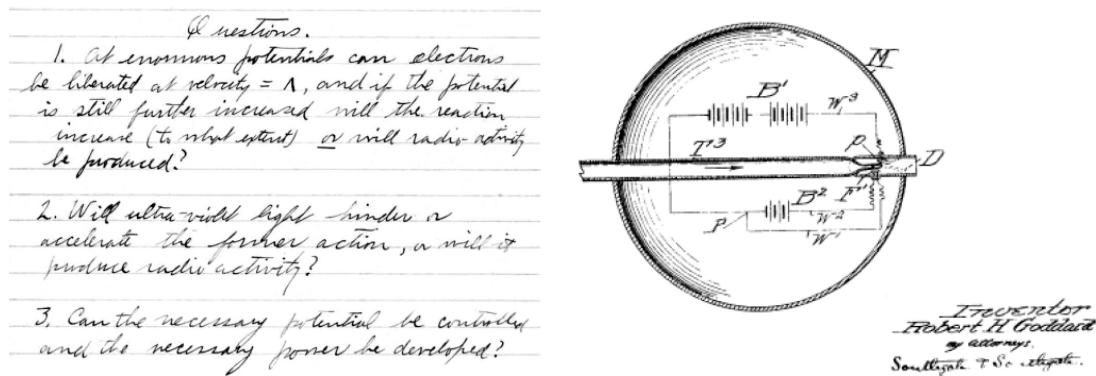 Questions.
1. At enormous potentials can electrons
be liberated at velocity = Λ, and if the potential
is still further increased will the reaction
increase (to what extent) or will radio-activity
be produced?
2. Will ultra-violet light hinder or
accelerate the former action, or will it
produce radio activity?
3. Can the necessary potential be controlled
and the necessary power be developed?
M
B'
W³
P
T'³
D
B²
F''
P
W²
W'
Inventor
Robert H Goddard
my attorneys.
Southgate & Southgate.